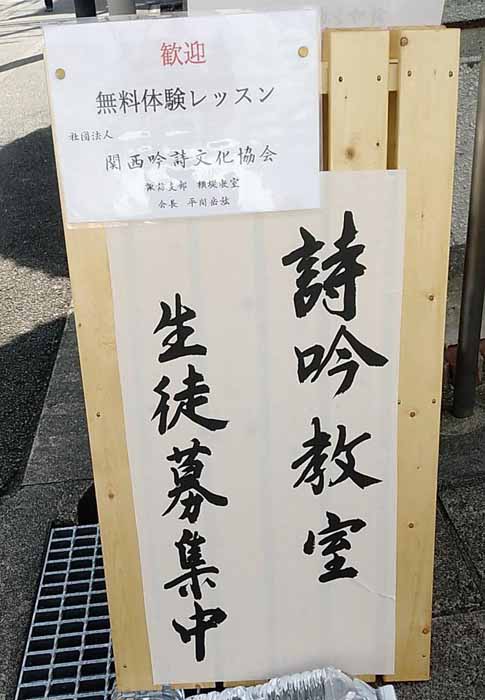 歓迎
無料体験レッスン
社団法人
関西吟詩文化協会
諏訪支部 横堤教室
会長 平岡
詩吟教室
生徒募集中